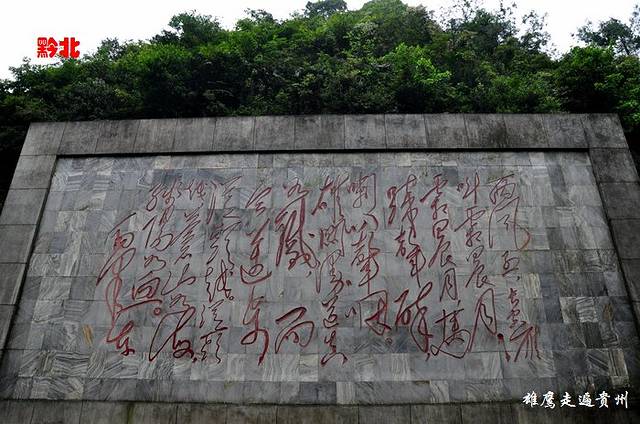 黔北
西风烈 长空雁
叫霜晨月。
霜晨月 马
蹄声碎
喇叭声咽。
雄关漫道真
如铁 而
今迈步
从头越。从头
越苍山如海
残阳如血。
毛泽东
雄鹰走遍贵州